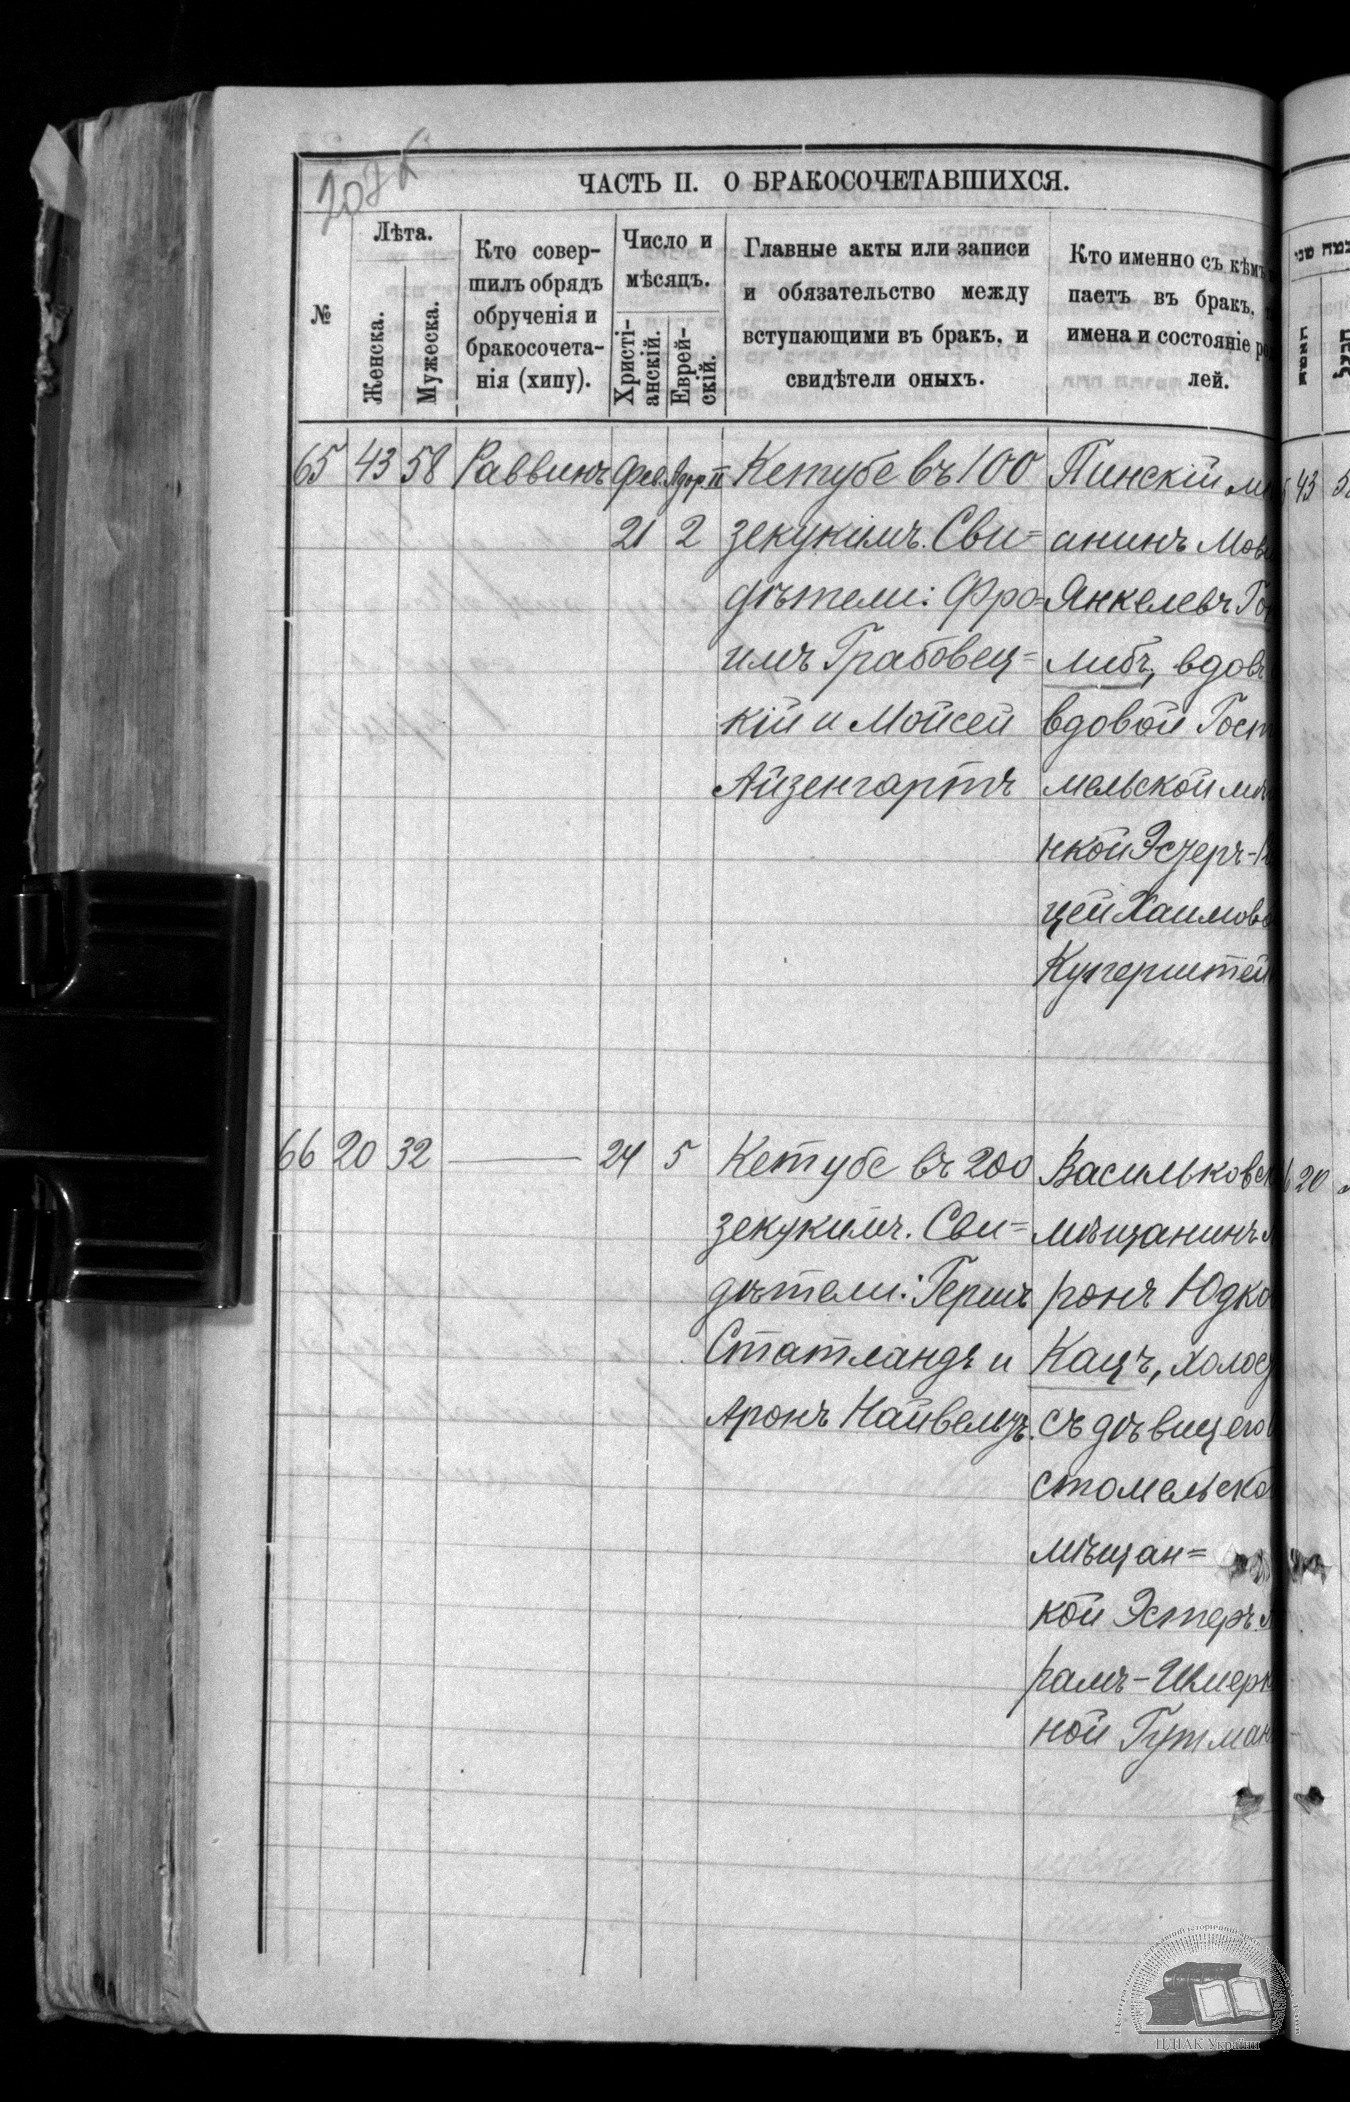 ЧАСТЬ II. О БРАКОСОЧЕТАВШИХСЯ.
№
Лѣта.
Женска.
Мужеска.
Кто совер-
шилъ обрядъ
обрученія и
бракосочета-
нія (хипу).
Число и
мѣсяцъ.
Христі-
анскій.
Еврей-
скій.
Главные акты или записи
и обязательство между
вступающими въ бракъ, и
свидѣтели оныхъ.
Кто именно съ кѣмъ
паетъ въ бракъ,
имена и состояніе ро
лей.
65 43 58 Раввинъ Фев. Адар. II
21 2
Кетубе въ 100
зекукимъ. Сви=
дѣтели: Фро=
имъ Грабовец=
кій и Мойсей
Айзенгартъ
Пинскій мѣ
анинъ Мов
Янкелевъ Го
либъ, вдов
вдовой Гост
мельской мѣ
нкой Эсѳеръ-
цей Хаимов
Куперштей
43
66 20 32 — 24 5
Кетубе въ 200
зекукимъ. Сви=
дѣтели: Гершъ
Статландъ и
Аронъ Найвельтъ.
Васильковск
мѣщанинъ
ронъ Юдко
Кацъ, холос
съ дѣвицею
стомельско
мѣщан=
кой Эстеръ
рамъ-Шмерк
ной Гутман
20
ЦДІАК України